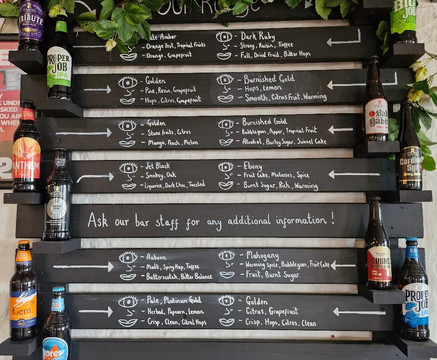 Our Range
TRIBUTE
Amber
- Dark Ruby
- Orange Zest, Tropical Fruits
- Strong, Raisin, Toffee
- Orange, Grapefruit
- Full, Dried Fruit, Bitter Hops
PROPER JOB
- Golden
- Burnished Gold
- Pine, Resin, Grapefruit
- Hops, Lemon
- Hops, Citrus, Grapefruit
- Smooth, Citrus Fruit, Warming
- Golden
- Burnished Gold
- Stone fruits, Citrus
- Bubblegum, Pepper, Tropical Fruit
- Mango, Peach, Melon
- Alcohol, Barley Sugar, Spiced Cake
- Jet Black
- Ebony
- Smokey, Oak
- Fruit Cake, Molasses, Spice
- Liquorice, Dark Choc, Toasted
- Burnt Sugar, Rich, Warming
Ask our bar staff for any additional information!
- Auburn
- Mahogany
- Malt, Spicy Hop, Toffee
- Warming Spice, Bubblegum, Fruit Cake
- Butterscotch, Bitter Balance
- Fruit, Burnt Sugar
- Pale, Platinum Gold
- Golden
- Herbal, Popcorn, Lemon
- Citrus, Grapefruit
- Crisp, Clean, Citral Hops
- Crisp, Hops, Citrus, Clean
Gem
PROPER JOB